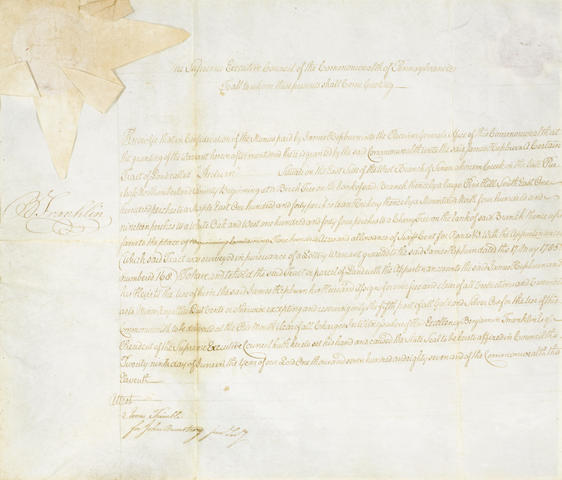 The Supreme Executive Council of the Commonwealth of Pennsylvania
To all to whom these presents shall Come Greeting
Know ye that in Consideration of the Monies paid by James Hepburn into the Receiver Generals Office of this Commonwealth at
the granting of the Warrant herein after mentioned there is granted by the said Commonwealth unto the said James Hepburn A Certain
Tract of Land called Situate on the East Side of the West Branch of Creek in the late
Northumberland County Beginning at a Birch Tree on the bank of said Branch thence by a large Pine Hill South East One
hundred perches to a South East One hundred and forty perches to an thence by a Mountain North four hundred and
nineteen perches to a White Oak and West one hundred and forty four perches to a on the bank of said Branch thence
to the place of beginning Containing hundred Acres and allowance of Six per Cent for Roads &c With the Appurtenances
(Which said Tract was Surveyed in pursuance of a Lottery Warrant granted to the said James Hepburn dated the 17 May 1785
numbered 160) To have and to hold the said Tract or parcel of Land with the Appurtenances unto the said James Hepburn and
his Heirs To the Use of him the said James Hepburn his Heirs and Assigns forever free and clear of all Restrictions and
as to Mines Royalties Quit Rents or Otherwise excepting and reserving only the fifth part of all Gold and Silver Ore for the Use of this
Commonwealth to be delivered at the Pits Mouth Clear of all Charges In Witness whereof the Excellency Benjamin Franklin Esqr
President of the Supreme Executive Council hath hereto set his hand and caused the State Seal to be hereto affixed in Council the
Twenty ninth day of in the Year of our Lord One thousand seven hundred and eighty seven and of the Commonwealth the
Eleventh
B Franklin
Attest
James Trimble
for John Armstrong junr Secy